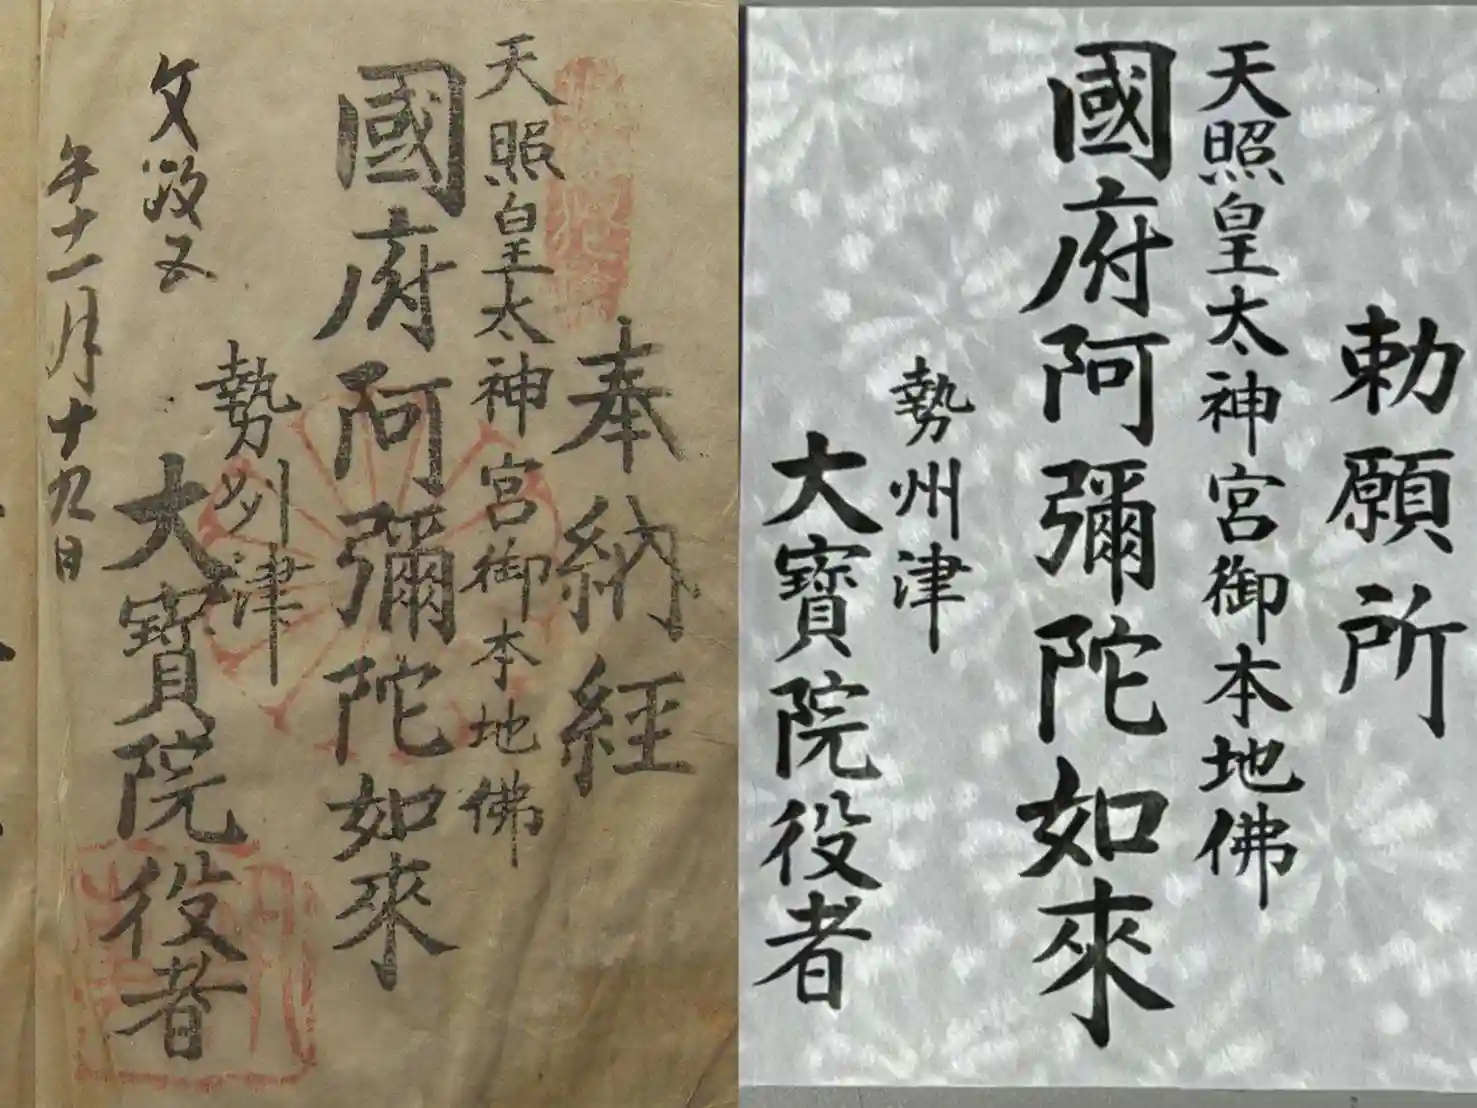 奉納経
天照皇太神宮御本地佛
國府阿彌陀如來
勢州津
大寶院役者
文政五
午十一月十九日
勅願所
天照皇太神宮御本地佛
國府阿彌陀如來
勢州津
大寶院役者